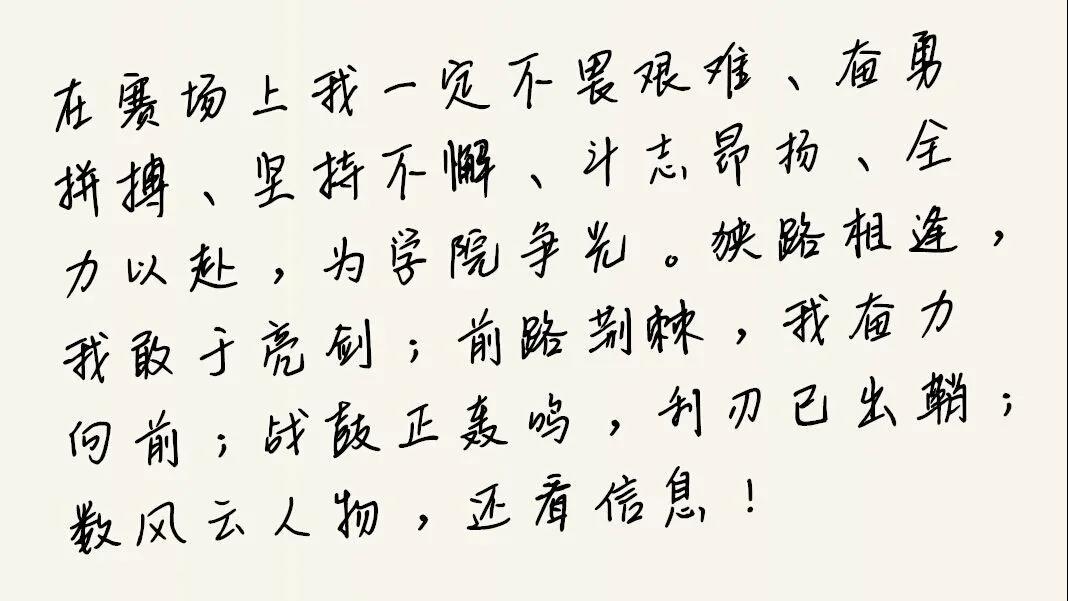 在赛场上我一定不畏艰难、奋勇
拼搏、坚持不懈、斗志昂扬、全
力以赴，为学院争光。狭路相逢，
我敢于亮剑；前路荆棘，我奋力
向前；战鼓正轰鸣，利刃已出鞘；
数风云人物，还看信息！